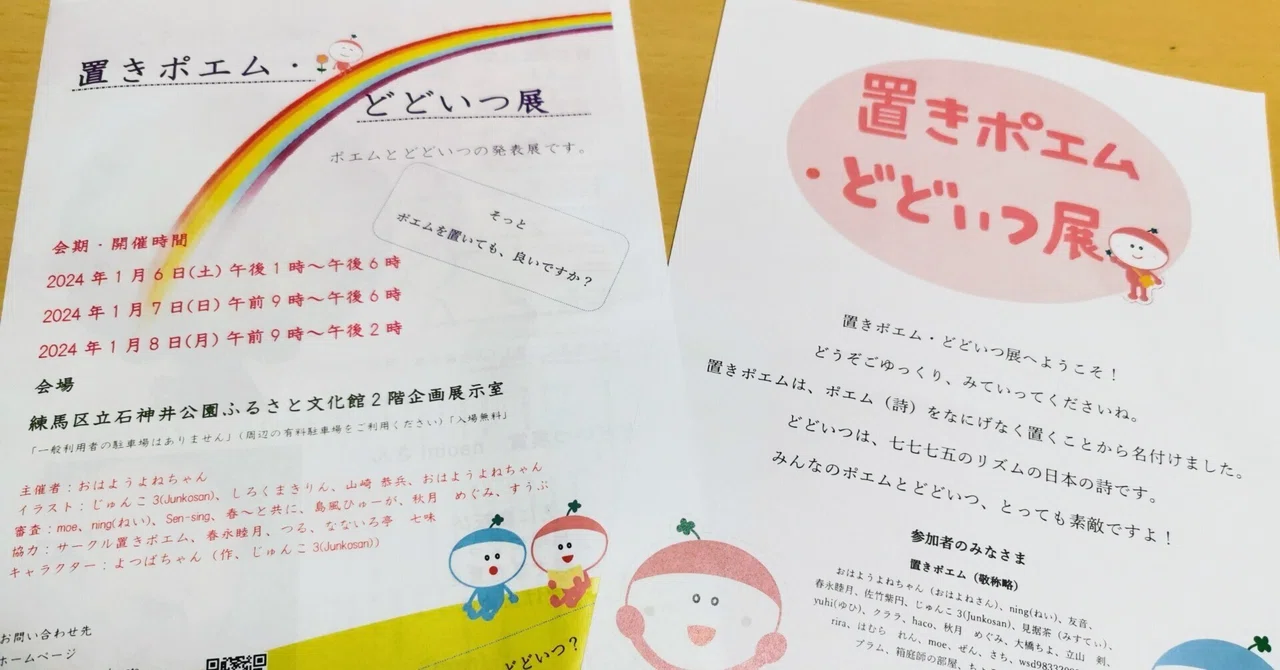 置きポエム・
どどいつ展
ポエムとどどいつの発表展です。
そっと
ポエムを置いても、良いですか？
会期・開催時間
2024年1月6日(土)午後1時～午後6時
2024年1月7日(日)午前9時～午後6時
2024年1月8日(月)午前9時～午後2時
会場
練馬区立石神井公園ふるさと文化館2階企画展示室
「一般利用者の駐車場はありません」（周辺の有料駐車場をご利用ください）「入場無料」
主催者：おはようよねちゃん
イラスト：じゅんこ3(Junkosan)、しろくまきりん、山崎 恭兵、おはようよねちゃん
審査：moe、ning(ねい)、Sen-sing、春～と共に、島風ひゅーが、秋月 めぐみ、すうぷ
協力：サークル置きポエム、春永睦月、つる、なないろ亭 七味
キャラクター：よつばちゃん（作、じゅんこ3(Junkosan)）
お問い合わせ先
ホームページ
どどいつ？
置きポエム
・どどいつ展
置きポエム・どどいつ展へようこそ！
どうぞごゆっくり、みていってくださいね。
置きポエムは、ポエム（詩）をなにげなく置くことから名付けました。
どどいつは、七七七五のリズムの日本の詩です。
みんなのポエムとどどいつ、とっても素敵ですよ！
参加者のみなさま
置きポエム（敬称略）
おはようよねちゃん（おはよねさん）、ning(ねい)、友音、
春永睦月、佐竹紫円、じゅんこ3(Junkosan)、見据茶（みすてぃ）、
yuhi(ゆひ)、クララ、haco、秋月 めぐみ、大橋ちよ、立山 剣、
rira、はむら れん、moe、ぜん、さち、
プラム、箱庭師の部屋、